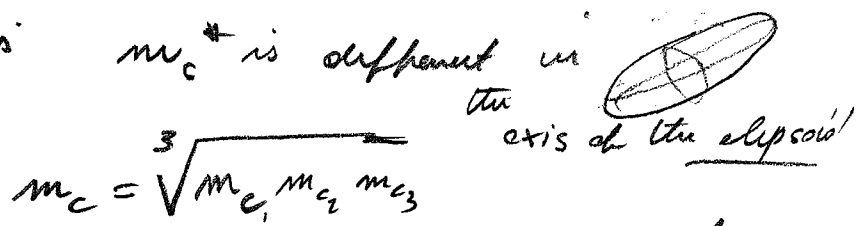 m_c* is different in
the
axis of the elipsoid
m_c = ∛(m_c₁ m_c₂ m_c₃)